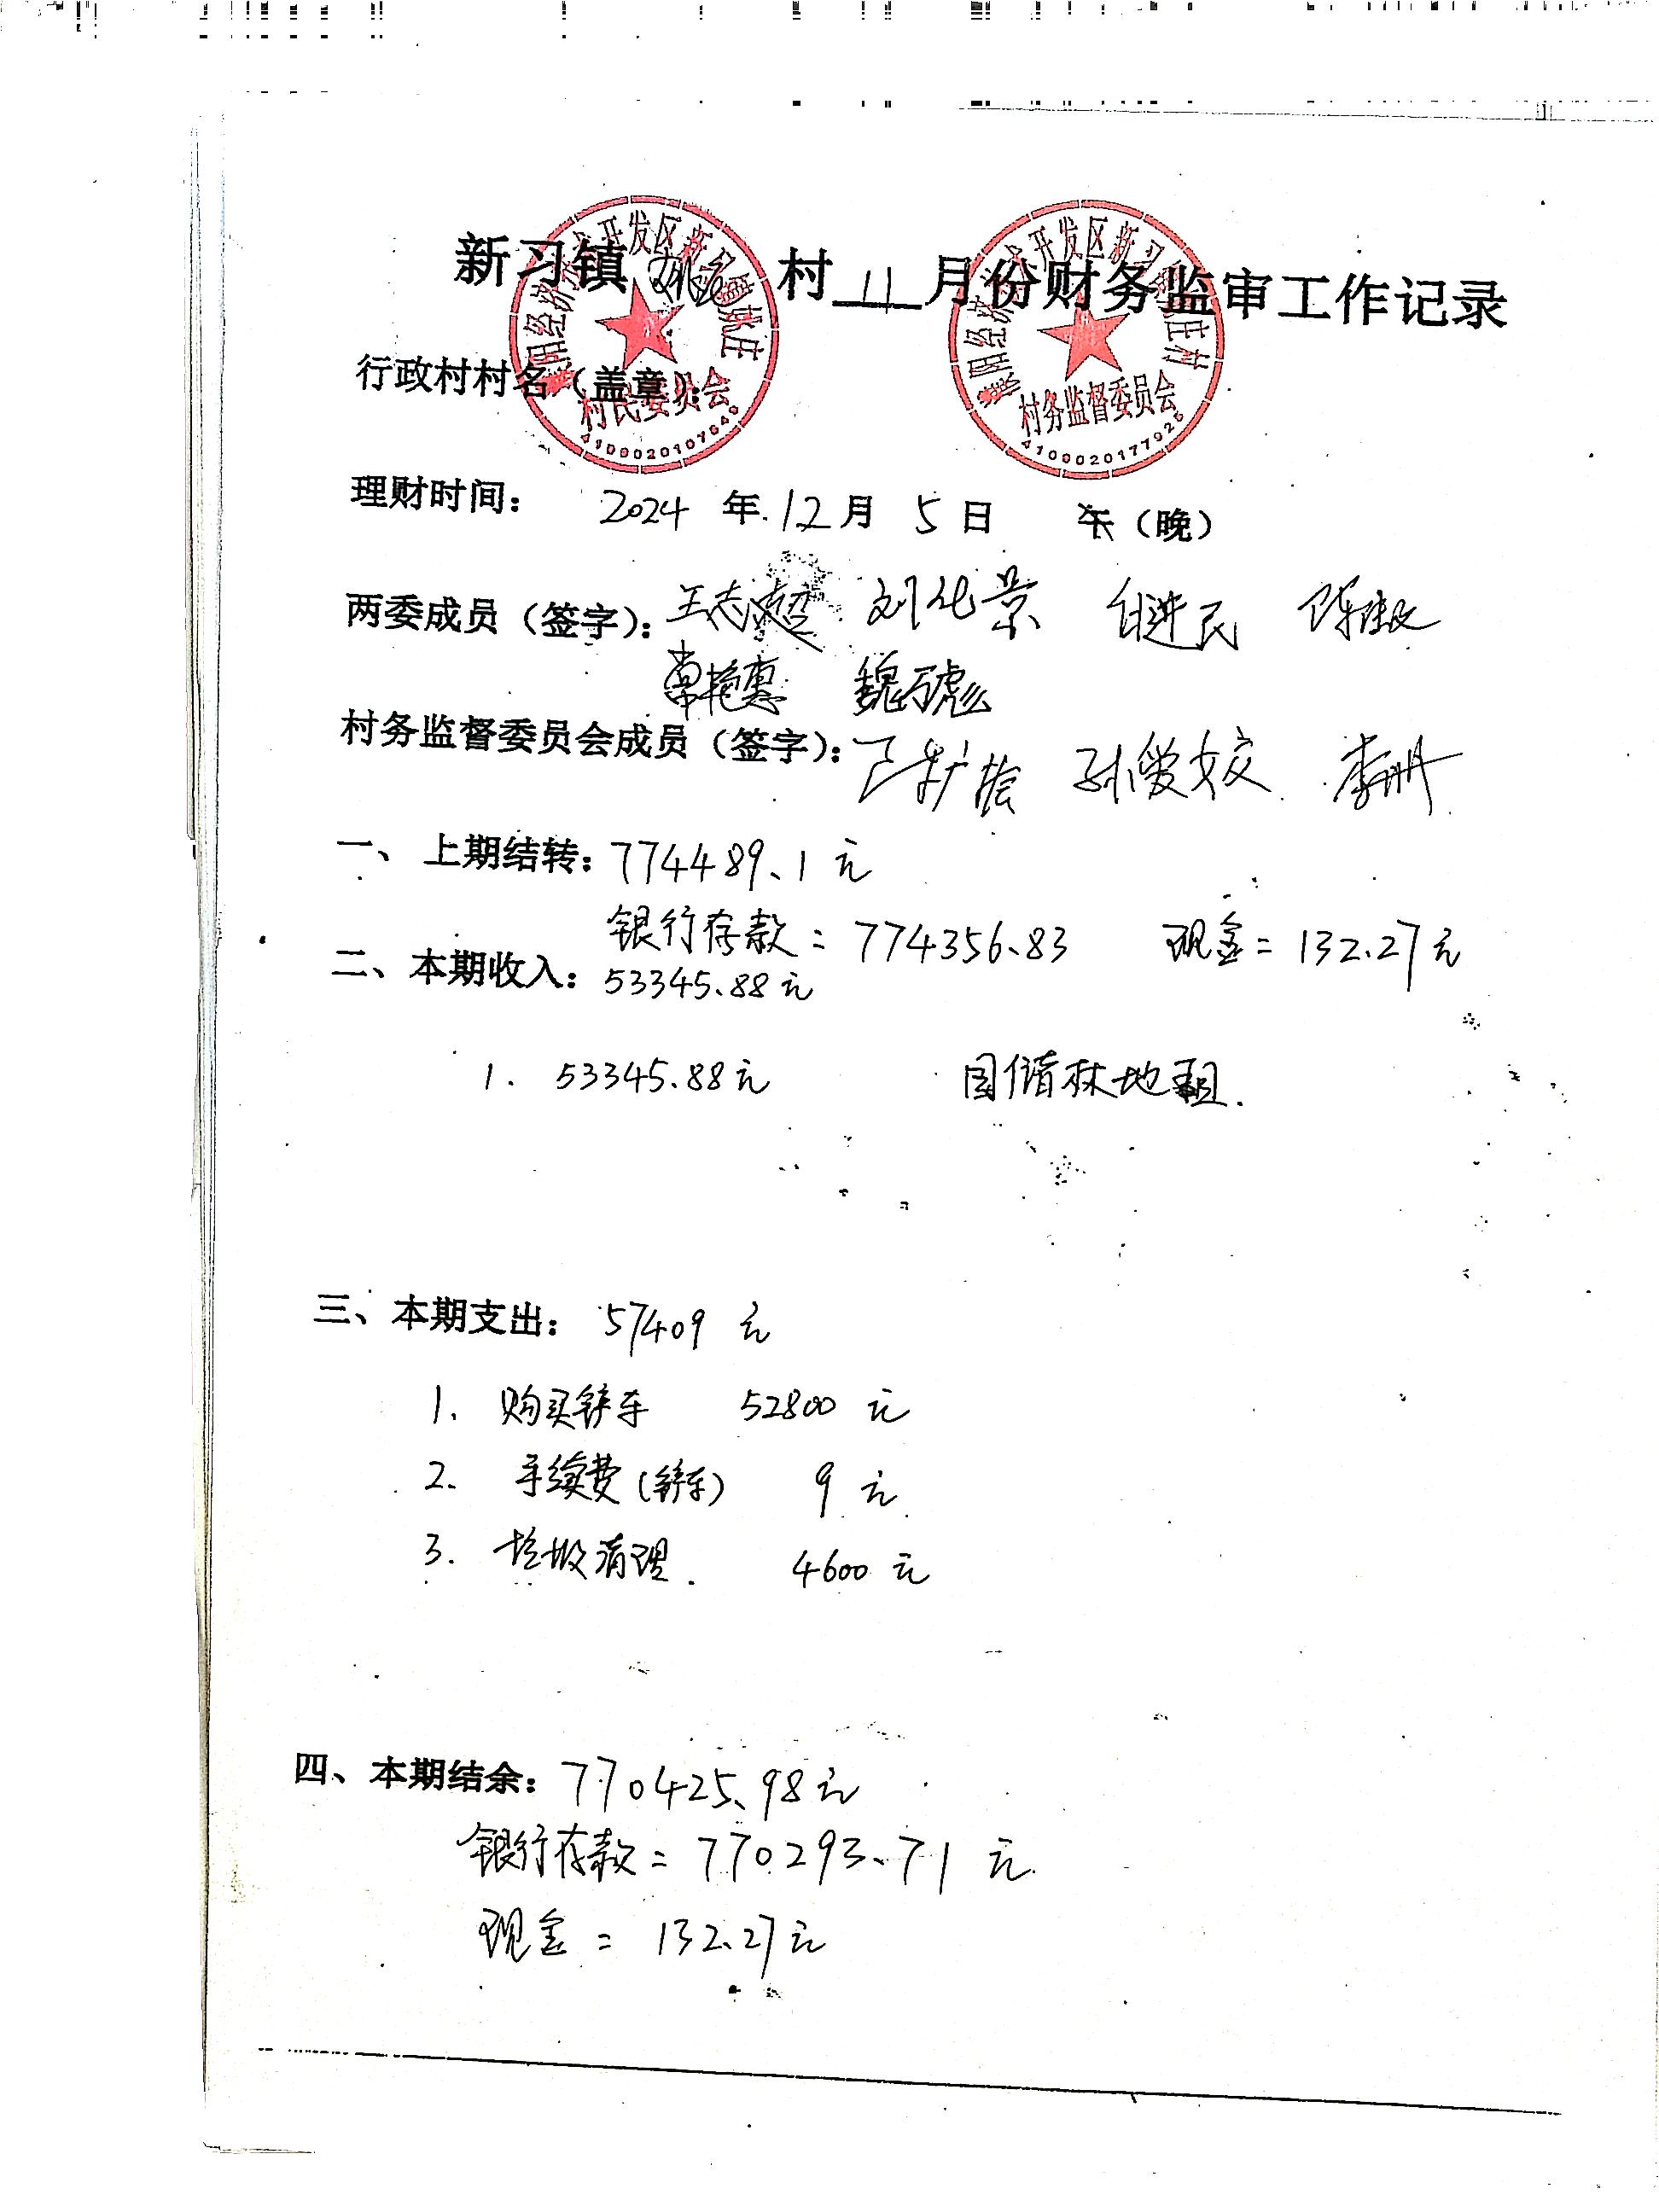 新习镇 姚庄 村 11 月份财务监审工作记录
濮阳经济技术开发区新习镇姚庄
村民委员会
4109020107646
濮阳经济技术开发区新习镇姚庄村
村务监督委员会
4109020177928
行政村村名（盖章）：
理财时间： 2024 年 12 月 5 日 午（晚）
两委成员（签字）： 王志超 刘化景 进民 陈
常艳惠 魏彪
村务监督委员会成员（签字）： 孙爱姣 李册
一、 上期结转：774489.1 元
银行存款：774356.83 现金：132.27元
二、本期收入：53345.88元
1. 53345.88元 国储林地租.
三、本期支出： 57409 元
1. 购买铲车 52800 元
2. 手续费(铲车) 9 元
3. 垃圾清理. 4600 元
四、本期结余：770425.98元
银行存款：770293.71 元
现金：132.27元